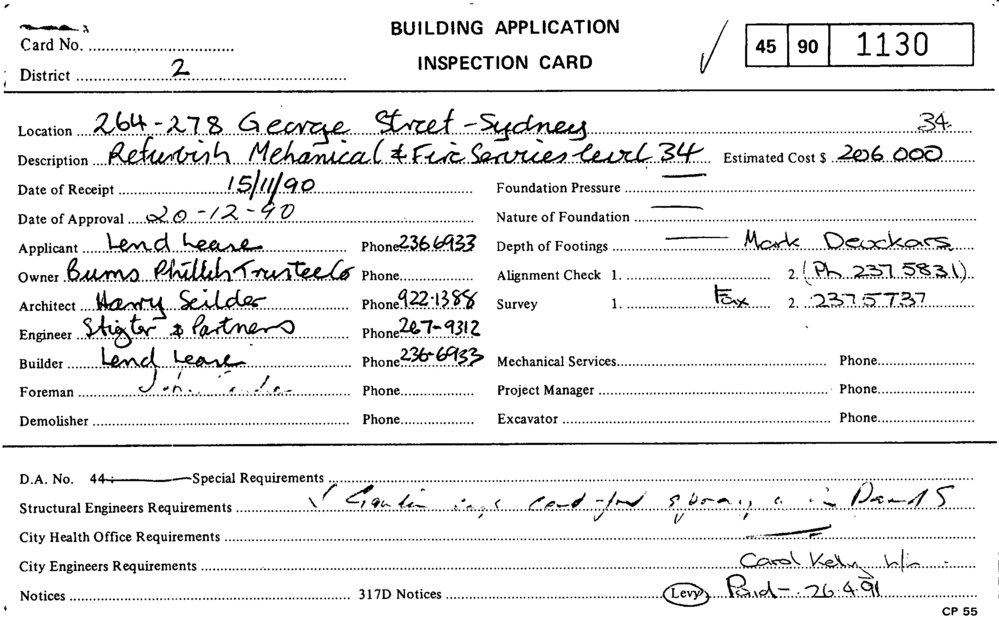 BUILDING APPLICATION
INSPECTION CARD
Card No.
District 2
45 90 1130
Location 264-278 George Street - Sydney 34
Description Refurbish Mehanical & Fire Services level 34 Estimated Cost $ 206 000
Date of Receipt 15/11/90 Foundation Pressure
Date of Approval 20-12-90 Nature of Foundation
Applicant Lend Lease Phone 236 6933 Depth of Footings Mark
Owner Burns Phillip Trustee Co Phone Alignment Check 1. 2. (Ph 237 5831)
Architect Harry Seilder Phone 922-1388 Survey 1. Fax 2. 237 5737
Engineer Stigter & Partners Phone 267-9312
Builder Lend Lease Phone 236-6933 Mechanical Services Phone
Foreman John Phone Project Manager Phone
Demolisher Phone Excavator Phone
D.A. No. 44 Special Requirements
Structural Engineers Requirements ✓
City Health Office Requirements
City Engineers Requirements Carol Kelly
Notices 317D Notices Levy Paid - 26.4.91
CP 55